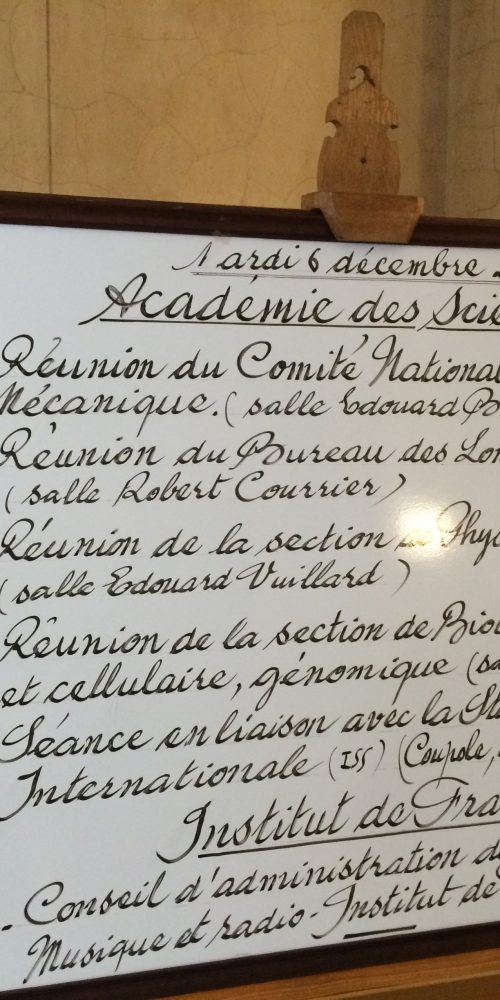 Mardi 6 décembre
Académie des Scie
Réunion du Comité National
Mécanique. (salle Edouard B
Réunion du Bureau des Lon
(salle Robert Courrier)
Réunion de la section de Phys
(salle Edouard Vuillard)
Réunion de la section de Biol
et cellulaire, génomique (sa
Séance en liaison avec la Sta
Internationale (ISS) (Coupole,
Institut de Fra
- Conseil d'administration d
Musique et radio - Institut de